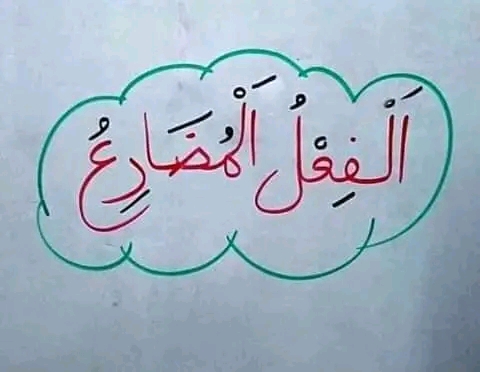 اَلْفِعْلُ الْمُضَارِعُ